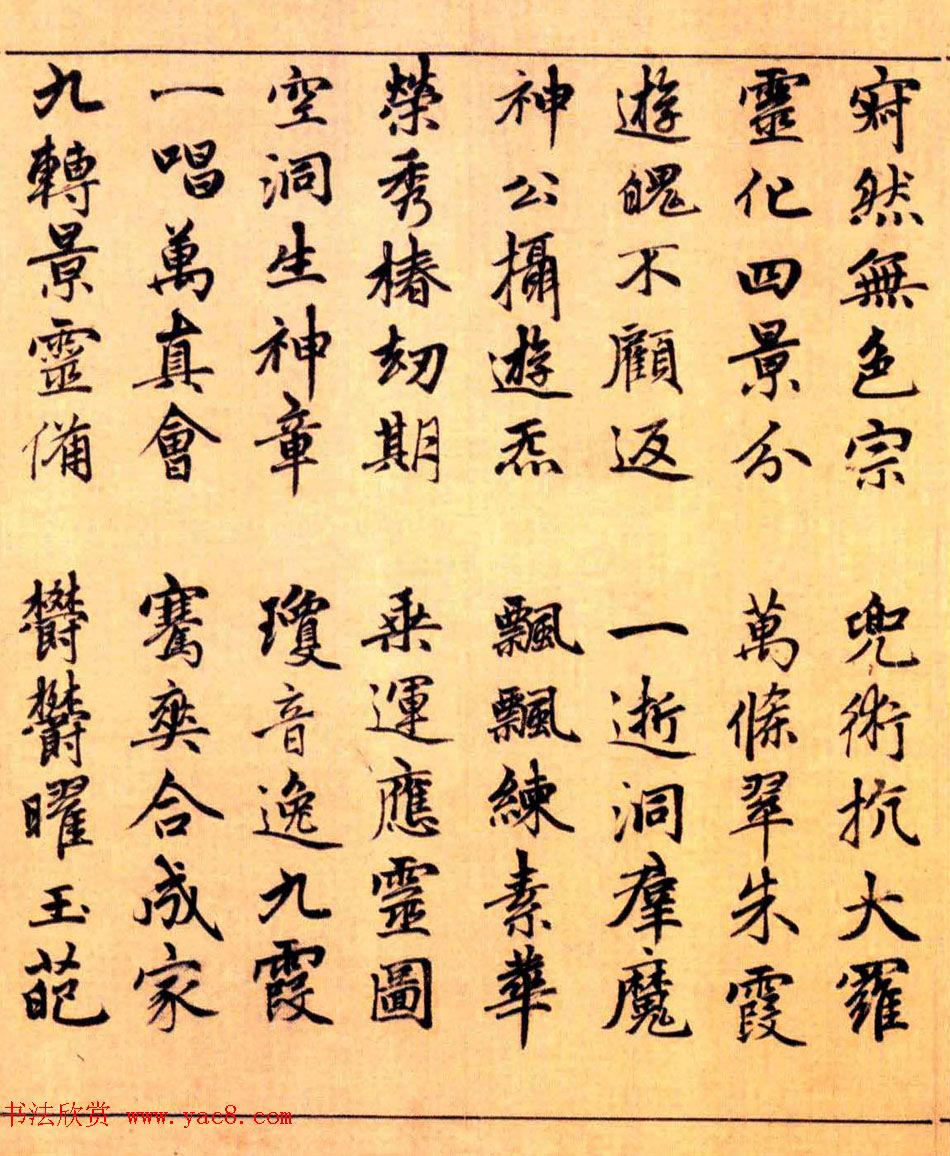 寂然無色宗 兜術抗大羅
靈化四景分 萬條翠朱霞
遊魄不顧返 一逝洞羣魔
神公攝遊炁 飄飄練素華
榮秀椿劫期 乘運應靈圖
空洞生神章 瓊音逸九霞
一唱萬真會 騫爽合成家
九轉景靈備 欝欝曜玉葩
书法欣赏 www.yac8.com